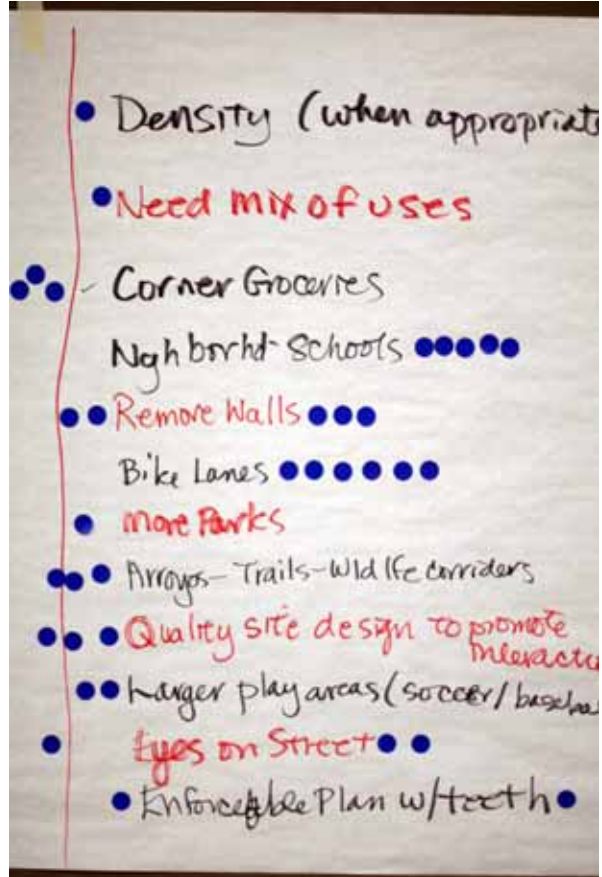 Density (when appropriate
Need mix of uses
- Corner Groceries
Nghborhd- Schools
Remove Walls
Bike Lanes
more Parks
Arroyos- Trails- Wldlfe corriders
Quality site design to promote
Interactio
Larger play areas (soccer/baseba
Eyes on Street
Enforceable Plan w/teeth